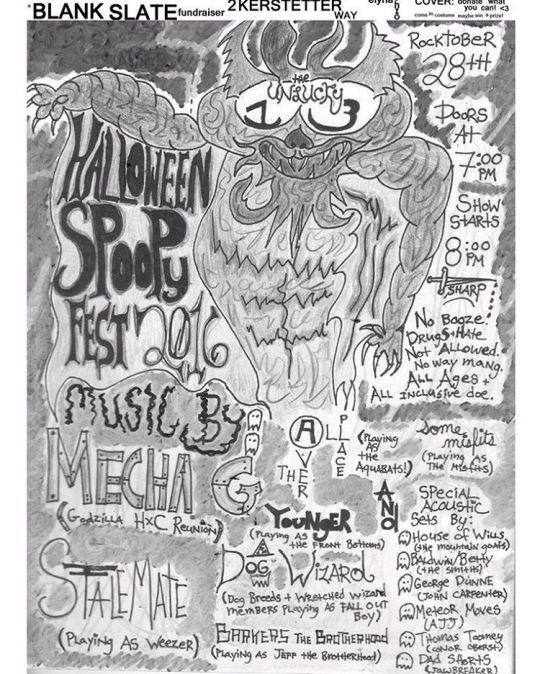 BLANK SLATE fundraiser 2 KERSTETTER WAY
COVER: donate what
you can! <3
come in costume maybe win a prize!
the
UNLUCKY
13
ROCKTOBER
28TH
DOORS
At
7:00
PM
SHOW
StARtS
8:00
PM
SHARP
No Booze.
DRUGS+HAte
Not ALLOWED.
No way mang.
ALL AGES +
ALL INCLUSIVE doe.
HALLOWEEN
SPOOPY
FEST 2016
MUSIC BY
MECHA G
(GODZILLA HXC REUNION)
STALEMATE
(PLAYING AS WEEZER)
THE AVER
ALL
PLACE
(PLAYING
AS
the
AQUABATS!)
YOUNGER
(PLAYING AS
tHE FRONt BOttOMS)
DOG WIZARD
(DOG BREEDS + WREtCHED WIZARD
MEMBERS PLAYING AS FALL OUT
BOY)
BARKERS THE BROTHERHOOD
(PLAYING AS JEFF tHE BROtHERHOOD)
Some
misfits
(PLAYING AS
tHE MISFItS)
AND
SPECIAL
ACOUSTIC
Sets By:
HOUSE OF WILLS
(tHE mountain goats)
BALDWIN/BEttY
(tHE SMItHS)
GEORGE DUNNE
(JOHN CARPENtER)
MEtEOR MOVES
(AJJ)
tHOMAS tOOMEY
(CONOR OBERST)
DAD SHORtS
(JAWBREAKER)